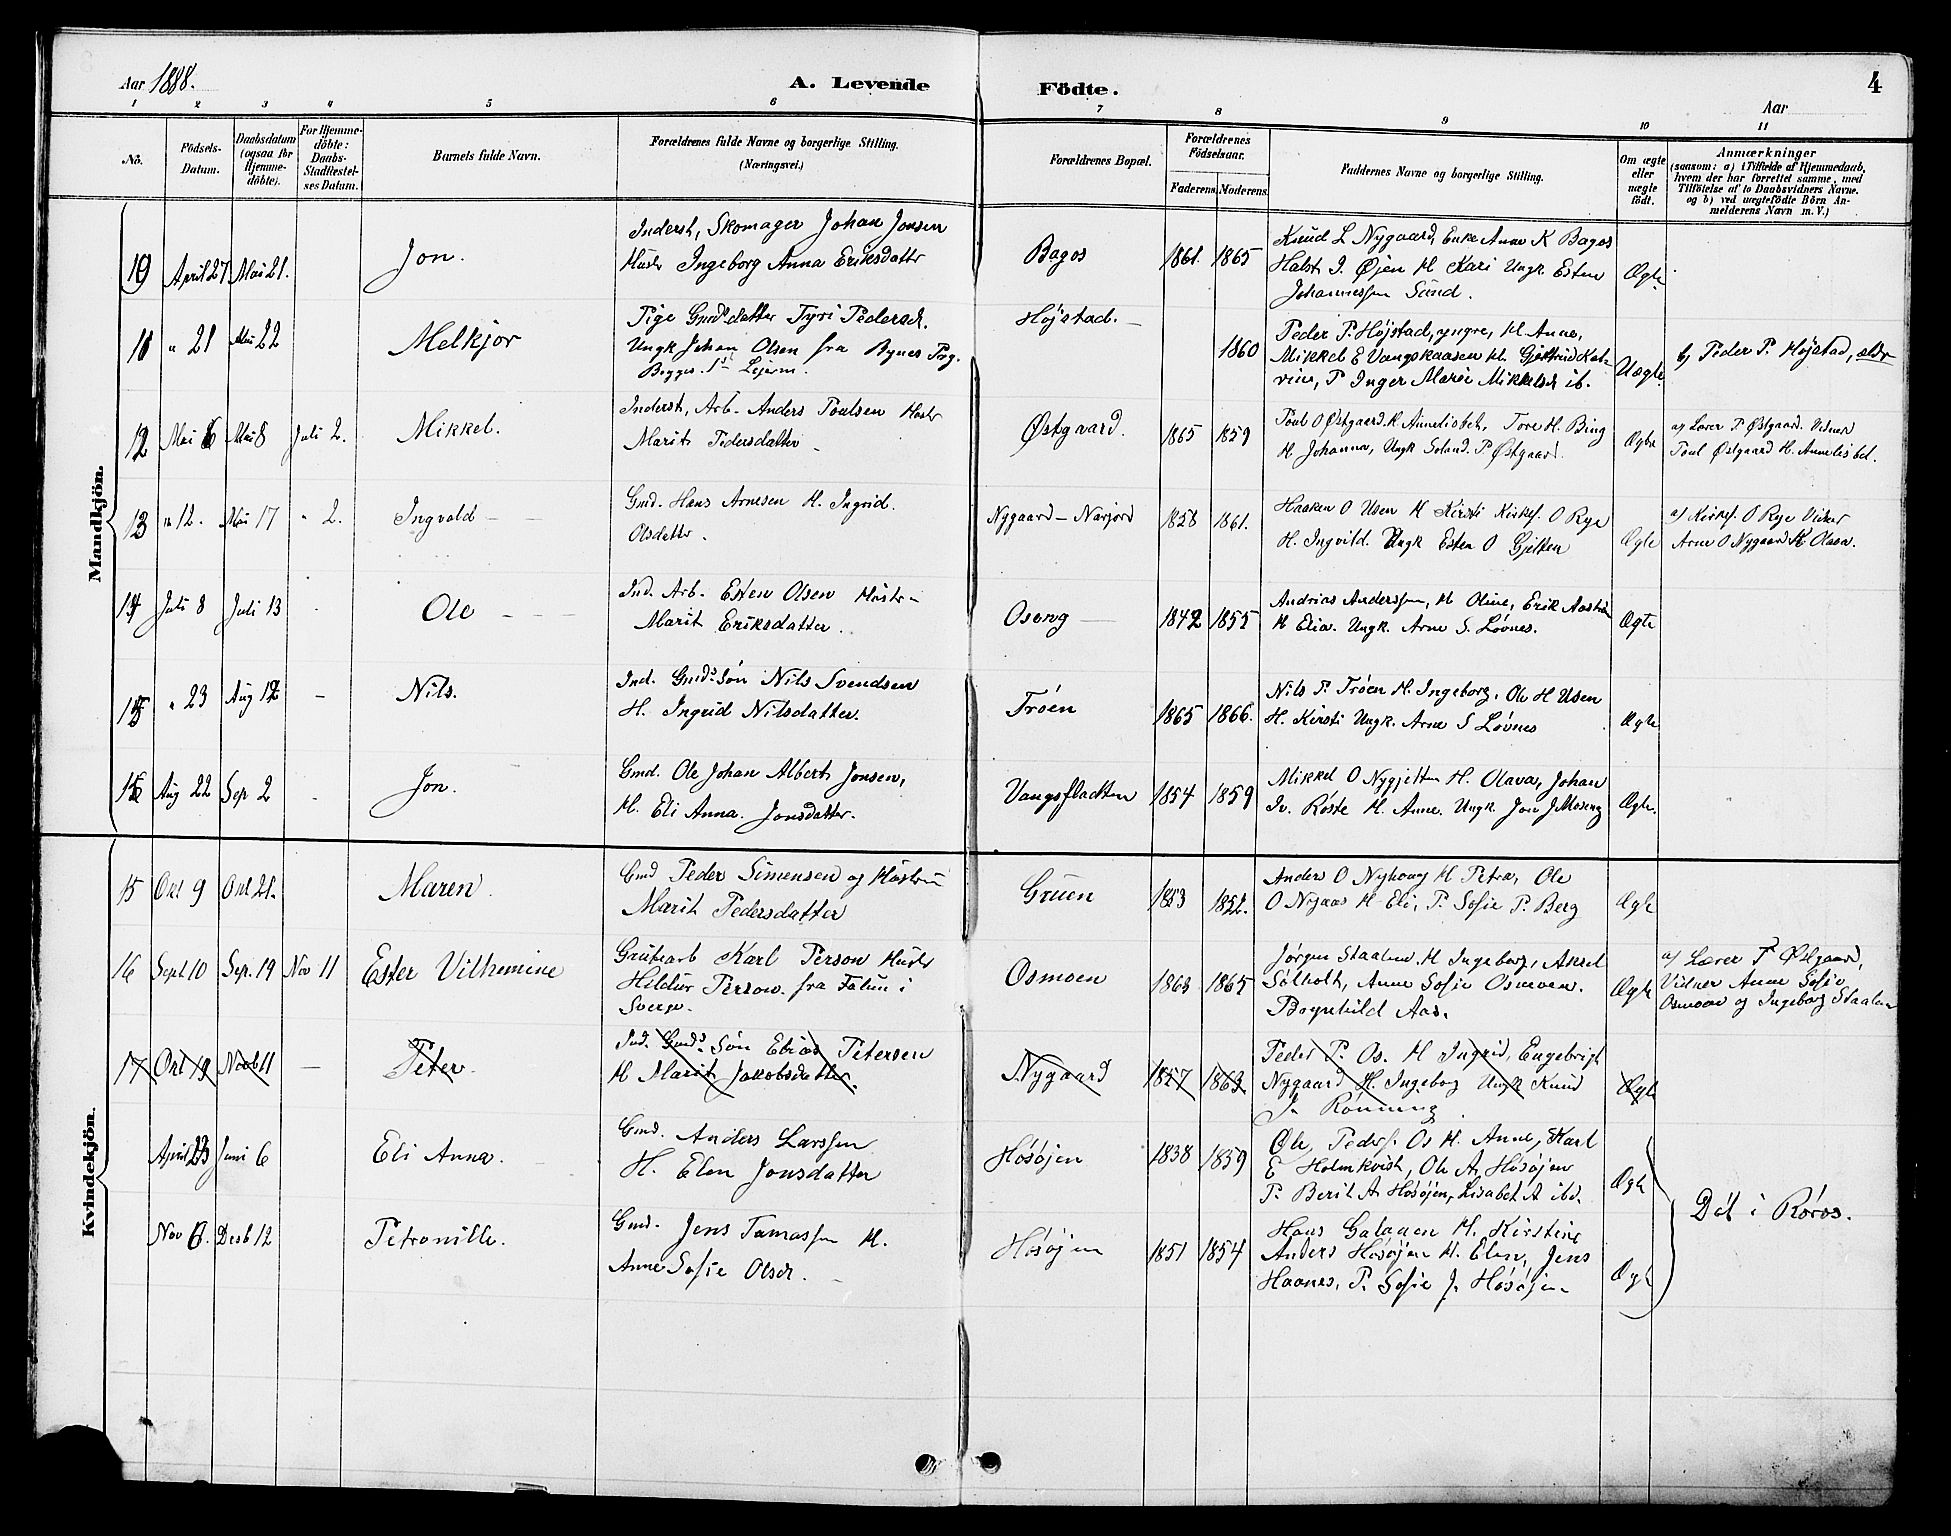 Aar 1888.
A. Levende Födte.
Aar
4
1 2 3 4 5 6 7 8 9 10 11
No.
Födsels-
Datum.
Daabsdatum
(ogsaa for
Hjemme-
döbte).
For Hjemme-
döbte:
Daabs-
Stadfæstel-
ses Datum.
Barnets fulde Navn.
Forældrenes fulde Navne og borgerlige Stilling.
(Næringsvei.)
Forældrenes Bopæl.
Forældrenes
Födselsaar.
Faderens. Moderens.
Faddernes Navne og borgerlige Stilling.
Om ægte
eller
uægte
födt.
Anmærkninger
(saasom: a) i Tilfælde af Hjemmedaab,
hvem der har forrettet samme, med
Tilföielse af to Daabsvidners Navne.
og b) ved uægtefödte Börn An-
melderens Navn m. V.)
Mandkjön.
10 April 27 Mai 21. Jon.
Inderst, Skomager Johan Jonsen
Hustr Ingeborg Anna Eriksdatter
Bagos 1861. 1865
Knud L Nygaard, Enke Anne K Bagos
Halst J. Øjen H Kari Ungk Esten
Johannessen Sund.
Ægte
11 " 21 Mai 22 Melkjor
Pige Gmds datter Tyri Pedersd.
Ungk Johan Olsen fra Bynes Prg.
Begges 1ste Lejerm.
Højstad. 1860
Peder P. Højstad, yngre, H. Anne,
Mikkel E Vangskaasen H. Gjertrud Kat-
rine, P Inger Marie Mikkelsd ib.
Uægte
b) Peder P. Højstad, eldr
12 Mai 6 Mai 8 Juli 2. Mikkel.
Inderst, Arb. Anders Poulsen Hustr
Marit Pedersdatter
Østgaard. 1865 1859
Poul O Østgaard H. Annelisbet, Tore H. Bing
H. Johanna, Ungk P. Østgaard
Ægte
a) Lærer P Østgaard. Vidner
Poul Østgaard H. Annelisbet.
13 " 12. Mai 17 " 2. Ingvald
Gmd. Hans Arnesen H. Ingrid.
Olsdatter.
Nygaard – Narjord 1828 1861.
Haaken O Usen H Kirsti Kirkes. O Rye
H. Ingvild. Ungk Esten O Gjelten
Ægte
a) Kirkes. O Rye Vidner
Arne O Nygaard H Olava.
14 Juli 8 Juli 13 Ole
Ind. Arb. Esten Olsen Hustr
Marit Eriksdatter.
Oseng 1842 1855
Andrias Anderssen, H Oline, Erik
H Elia. Ungk. Arne S. Løvnes.
Ægte
15 " 23 Aug 12 Nils.
Ind. Gmds Søn Nils Svendsen
H. Ingrid Nilsdatter.
Trøen 1865 1866.
Nils P. Trøen H. Ingeborg, Ole H Usen
H. Kirsti Ungk. Arne S Løvnes
Ægte
16 Aug 22 Sep 2 Jon.
Gmd. Ole Johan Albert Jonsen,
H. Eli Anna. Jonsdatter.
Vangsfladten 1854 1859
Mikkel O Nygjelten H. Olava, Johan
Iv. Røste H. Anne. Ungk. Jon J Moseng
Ægte.
Kvindekjön.
15 Okt 9 Okt 21. Maren.
Gmd Peder Simensen og Hustru
Marit Pedersdatter
Gruen 1853 1852.
Anders O Nyhoug H Petra, Ole
O Nygaas H Eli, P. Sofie P. Berg
Ægte
16 Sept 10 Sep. 19 Nov 11 Ester Vilhemine
Grubearb Karl Person Hustr
Hildur Person. fra Falun i
Sverge.
Osmoen 1863 1865
Jørgen Staalen H Ingeborg, Aksel
Sølholt, Anne Sofie Osmoen.
Bognhild Aas.
Ægte
a) Lærer P Østgaard,
Vidner Anne Sofie
Osmoen og Ingeborg Staalen
17 Okt 19 Novb 11 Peter
Ind. Gmds Søn Elias Petersen
H Marit Jakobsdatter.
Nygaard 1857 1863
Peder P. Os. H Ingrid, Engebrigt
Nygaard H. Ingeborg Ungk Knud
J. Rønning
Ægte
April 23 Juni 6 Eli Anna.
Gmd. Anders Larssen
H. Elen Jonsdatter
Høsøjen 1838 1859
Ole Peders. Os H. Anne, Karl
E Holmkvist, Ole A. Høsøjen
P. Berit A Høsøjen, Lisabet A ibd.
Ægte
Nov 6. Desb 12 Petronille.
Gmd. Jens Tamassen H.
Anne Sofie Olsdr.
Høsøjen 1851 1854
Hans Galaaen H. Kirstine
Anders Høsøjen H. Elen, Jens
Haanes, P. Sofie J. Høsøjen
Ægte
Døb i Røros.